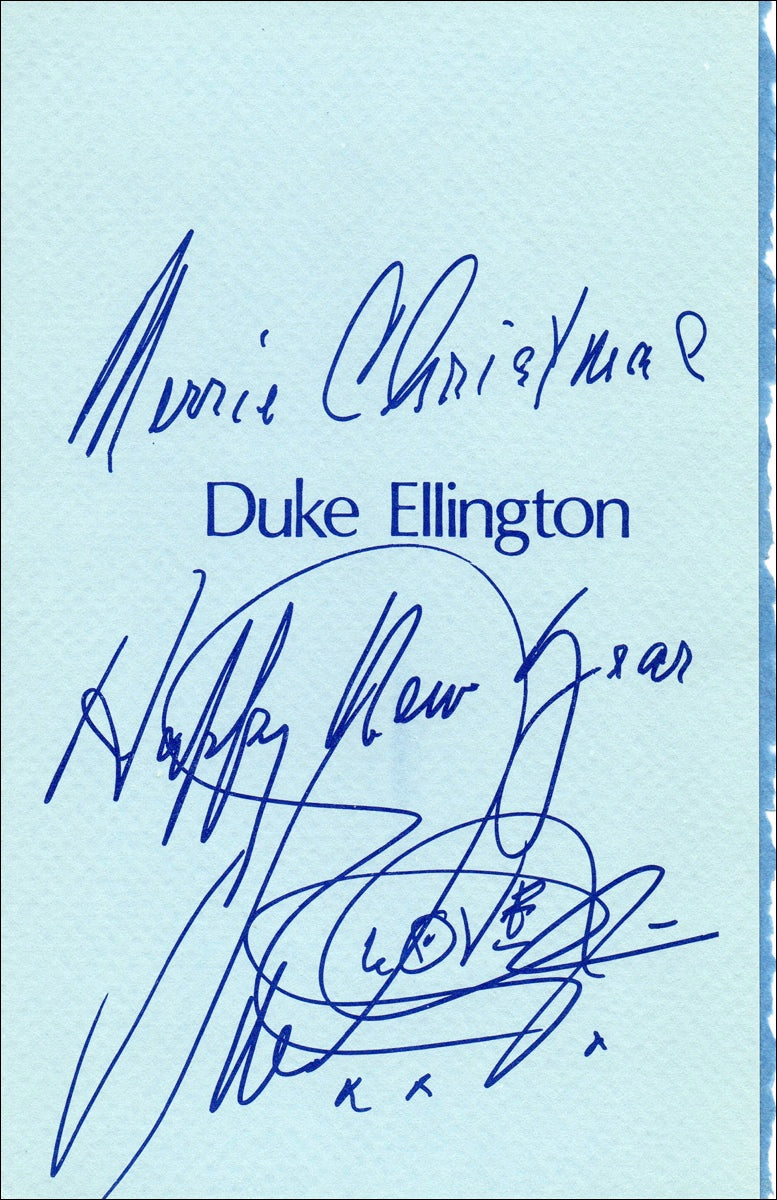 Merrie Christmas
Duke Ellington
Happy New Year
LOVE
x x x